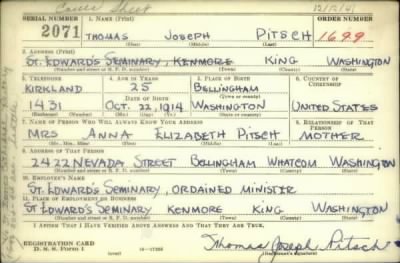 Cover Sheet 12/12/41
SERIAL NUMBER 1. NAME (Print) ORDER NUMBER
2071 THOMAS JOSEPH PITSCH 1699
(First) (Middle) (Last)
2. ADDRESS (Print)
ST. EDWARD'S SEMINARY, KENMORE KING WASHINGTON
(Number and street or R. F. D. number) (Town) (County) (State)
3. TELEPHONE 4. AGE IN YEARS 5. PLACE OF BIRTH 6. COUNTRY OF CITIZENSHIP
KIRKLAND 25 BELLINGHAM
DATE OF BIRTH (Town or county)
1431 OCT. 22, 1914 WASHINGTON UNITED STATES
(Mo.) (Day) (Yr.) (State or country)
7. NAME OF PERSON WHO WILL ALWAYS KNOW YOUR ADDRESS 8. RELATIONSHIP OF THAT PERSON
MRS ANNA ELIZABETH PITSCH MOTHER
(Mr., Mrs., Miss) (First) (Middle) (Last)
9. ADDRESS OF THAT PERSON
2422 NEVADA STREET BELLINGHAM WHATCOM WASHINGTON
(Number and street or R. F. D. number) (Town) (County) (State)
10. EMPLOYER'S NAME
ST. EDWARD'S SEMINARY, ORDAINED MINISTER
11. PLACE OF EMPLOYMENT OR BUSINESS
ST. EDWARD'S SEMINARY KENMORE KING WASHINGTON
(Number and street or R. F. D. number) (Town) (County) (State)
I AFFIRM THAT I HAVE VERIFIED ABOVE ANSWERS AND THAT THEY ARE TRUE.
REGISTRATION CARD
D. S. S. Form 1 (over) 16-17105 Thomas Joseph Pitsch
(Registrant's signature)